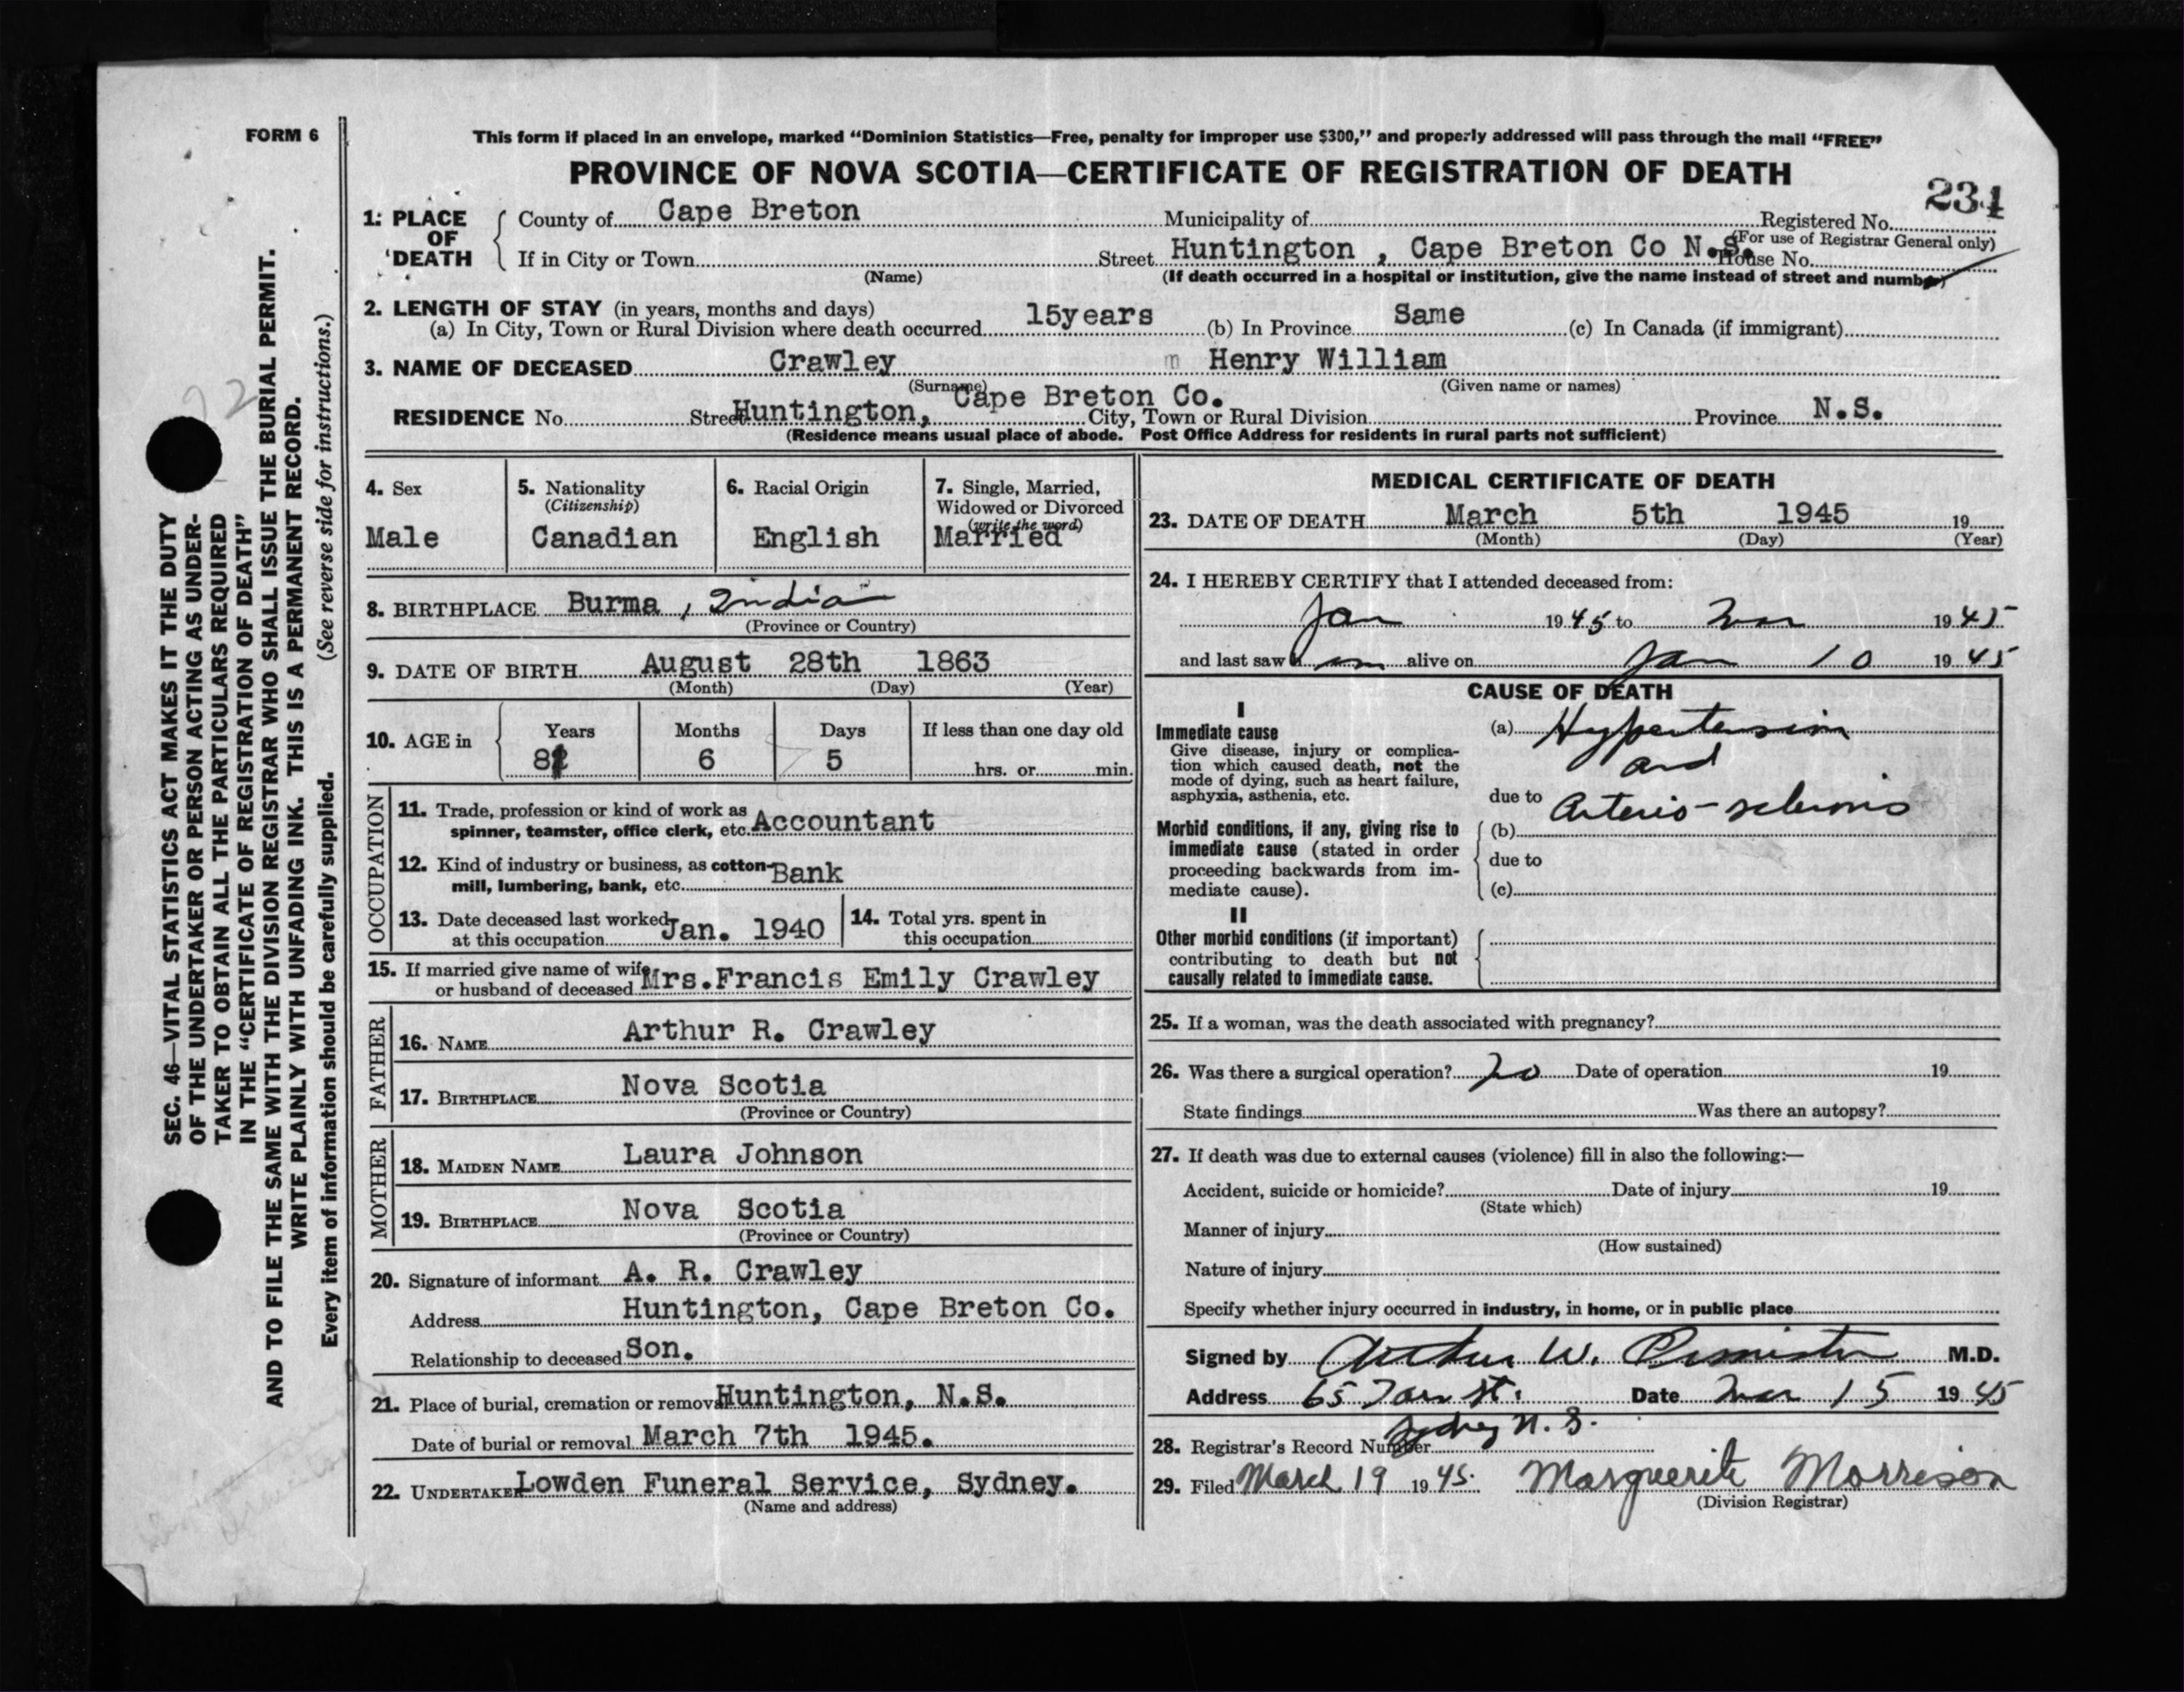 FORM 6
This form if placed in an envelope, marked “Dominion Statistics—Free, penalty for improper use $300,” and properly addressed will pass through the mail “FREE”
PROVINCE OF NOVA SCOTIA—CERTIFICATE OF REGISTRATION OF DEATH
231
1. PLACE OF DEATH
County of Cape Breton Municipality of Registered No.
(For use of Registrar General only)
If in City or Town Street Huntington , Cape Breton Co N.S. House No.
(Name) (If death occurred in a hospital or institution, give the name instead of street and number)
2. LENGTH OF STAY (in years, months and days)
(a) In City, Town or Rural Division where death occurred 15years (b) In Province Same (c) In Canada (if immigrant)
3. NAME OF DECEASED Crawley m Henry William
(Surname) (Given name or names)
RESIDENCE No. Street Huntington, Cape Breton Co. City, Town or Rural Division Province N.S.
(Residence means usual place of abode. Post Office Address for residents in rural parts not sufficient)
4. Sex
Male
5. Nationality
(Citizenship)
Canadian
6. Racial Origin
English
7. Single, Married,
Widowed or Divorced
(write the word)
Married
8. BIRTHPLACE Burma , India
(Province or Country)
9. DATE OF BIRTH August 28th 1863
(Month) (Day) (Year)
10. AGE in Years Months Days If less than one day old
81 6 5 hrs. or min.
OCCUPATION
11. Trade, profession or kind of work as
spinner, teamster, office clerk, etc. Accountant
12. Kind of industry or business, as cotton-
mill, lumbering, bank, etc. Bank
13. Date deceased last worked
at this occupation Jan. 1940
14. Total yrs. spent in
this occupation
15. If married give name of wife
or husband of deceased Mrs.Francis Emily Crawley
FATHER
16. NAME Arthur R. Crawley
17. BIRTHPLACE Nova Scotia
(Province or Country)
MOTHER
18. MAIDEN NAME Laura Johnson
19. BIRTHPLACE Nova Scotia
(Province or Country)
20. Signature of informant A. R. Crawley
Address Huntington, Cape Breton Co.
Relationship to deceased Son.
21. Place of burial, cremation or removal Huntington, N.S.
Date of burial or removal March 7th 1945.
22. UNDERTAKER Lowden Funeral Service, Sydney.
(Name and address)
MEDICAL CERTIFICATE OF DEATH
23. DATE OF DEATH March 5th 1945 19
(Month) (Day) (Year)
24. I HEREBY CERTIFY that I attended deceased from:
Jan 1945 to Mar 1945
and last saw him alive on Jan 10 1945
CAUSE OF DEATH
I
Immediate cause
Give disease, injury or complica-
tion which caused death, not the
mode of dying, such as heart failure,
asphyxia, asthenia, etc.
(a) Hypertension
and
due to Arterio-sclerosis
Morbid conditions, if any, giving rise to
immediate cause (stated in order
proceeding backwards from im-
mediate cause).
(b)
due to
(c)
II
Other morbid conditions (if important)
contributing to death but not
causally related to immediate cause.
25. If a woman, was the death associated with pregnancy?
26. Was there a surgical operation? No Date of operation 19
State findings Was there an autopsy?
27. If death was due to external causes (violence) fill in also the following:—
Accident, suicide or homicide? Date of injury 19
(State which)
Manner of injury
(How sustained)
Nature of injury
Specify whether injury occurred in industry, in home, or in public place
Signed by Arthur W. M.D.
Address 65 St. Date Mar 15 1945
Sydney N.S.
28. Registrar's Record Number
29. Filed March 19 1945. Marguerite Morrison
(Division Registrar)
SEC. 46—VITAL STATISTICS ACT MAKES IT THE DUTY
OF THE UNDERTAKER OR PERSON ACTING AS UNDER-
TAKER TO OBTAIN ALL THE PARTICULARS REQUIRED
IN THE “CERTIFICATE OF REGISTRATION OF DEATH”
AND TO FILE THE SAME WITH THE DIVISION REGISTRAR WHO SHALL ISSUE THE BURIAL PERMIT.
WRITE PLAINLY WITH UNFADING INK. THIS IS A PERMANENT RECORD.
Every item of information should be carefully supplied. (See reverse side for instructions.)